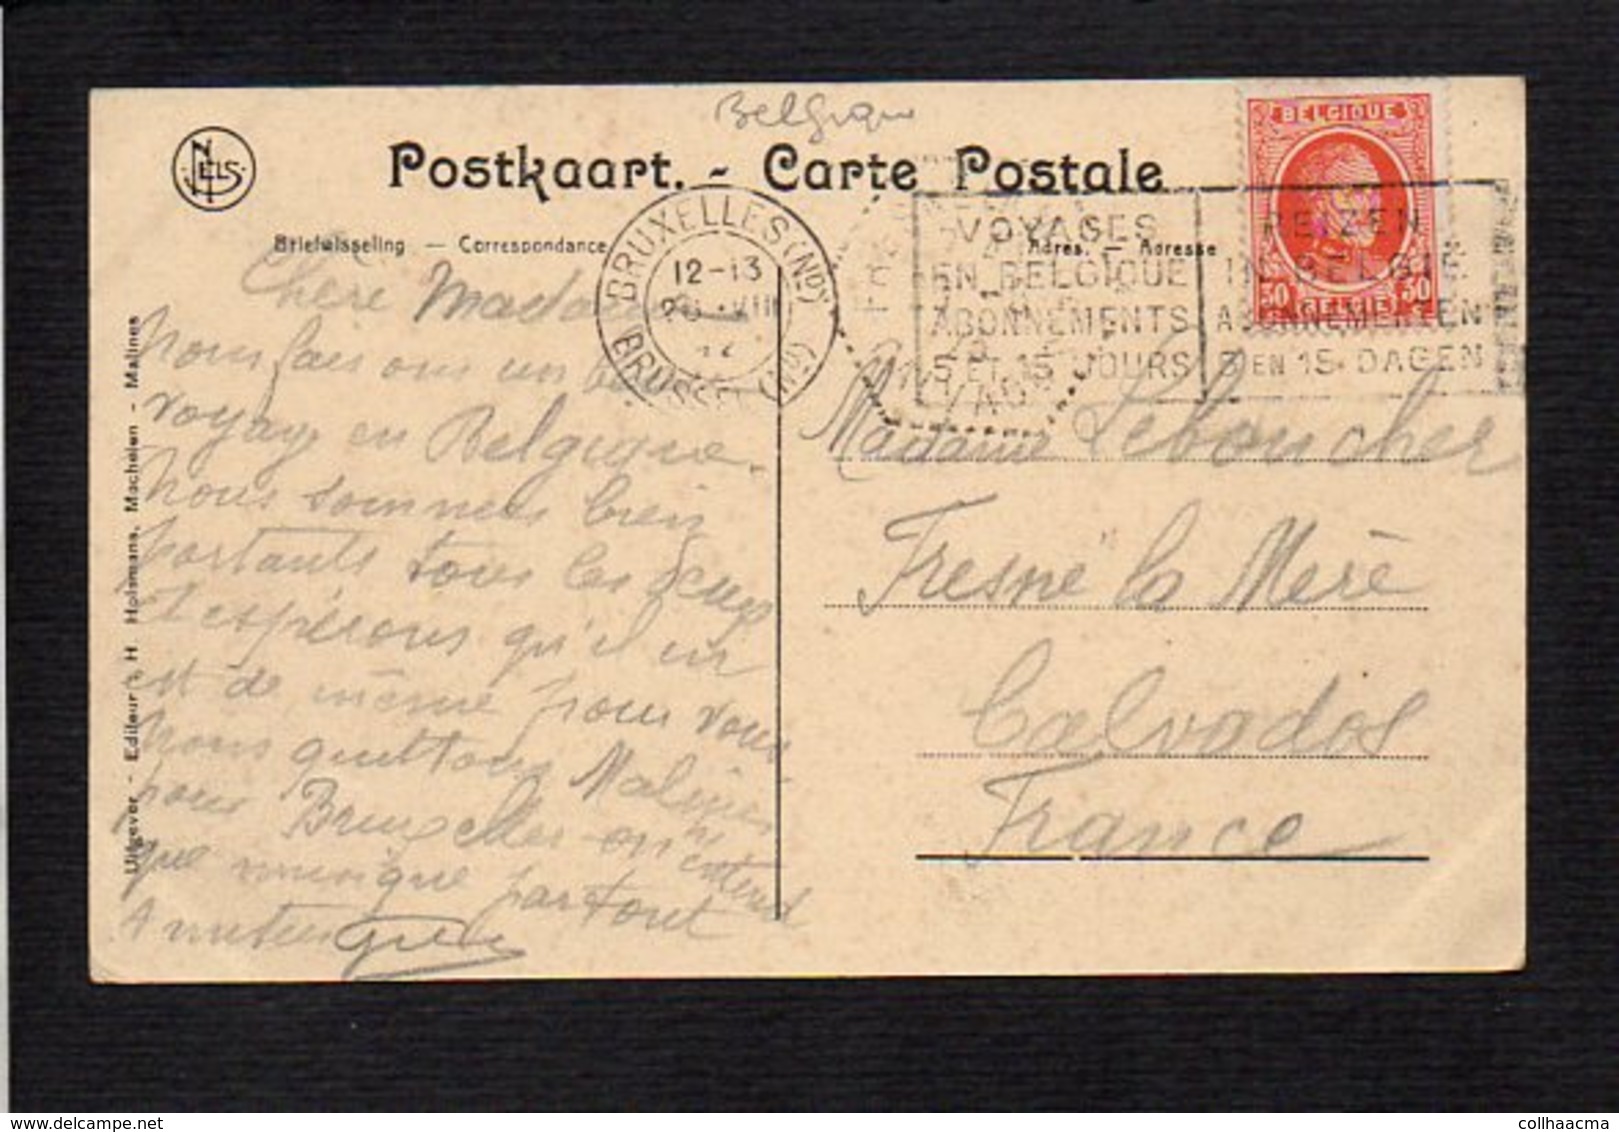 Belgique
NELS
Postkaart. - Carte Postale
Briefwisseling — Correspondance
Adres. — Adresse
BRUXELLES (Nd)
12-13
VIII
BRUSSEL
VOYAGES
EN BELGIQUE
ABONNEMENTS
5 ET 15 JOURS
REIZEN
IN BELGIE
ABONNEMENTEN
5 EN 15 DAGEN
BELGIQUE
30 BELGIË 30
Chère Madame
Nous fais ons un beau
voyage en Belgique.
Nous sommes bien
portants tous les deux
et espérons qu'il en
est de même pour vous
Nous quittons Malines
pour Bruxelles on n'entend
que musique partout
Amitiés
Madame Leboucher
Fresné la Mère
Calvados
France
Uitgever - Editeur : H. Holemans, Mechelen - Malines
www.delcampe.net
colhaacma